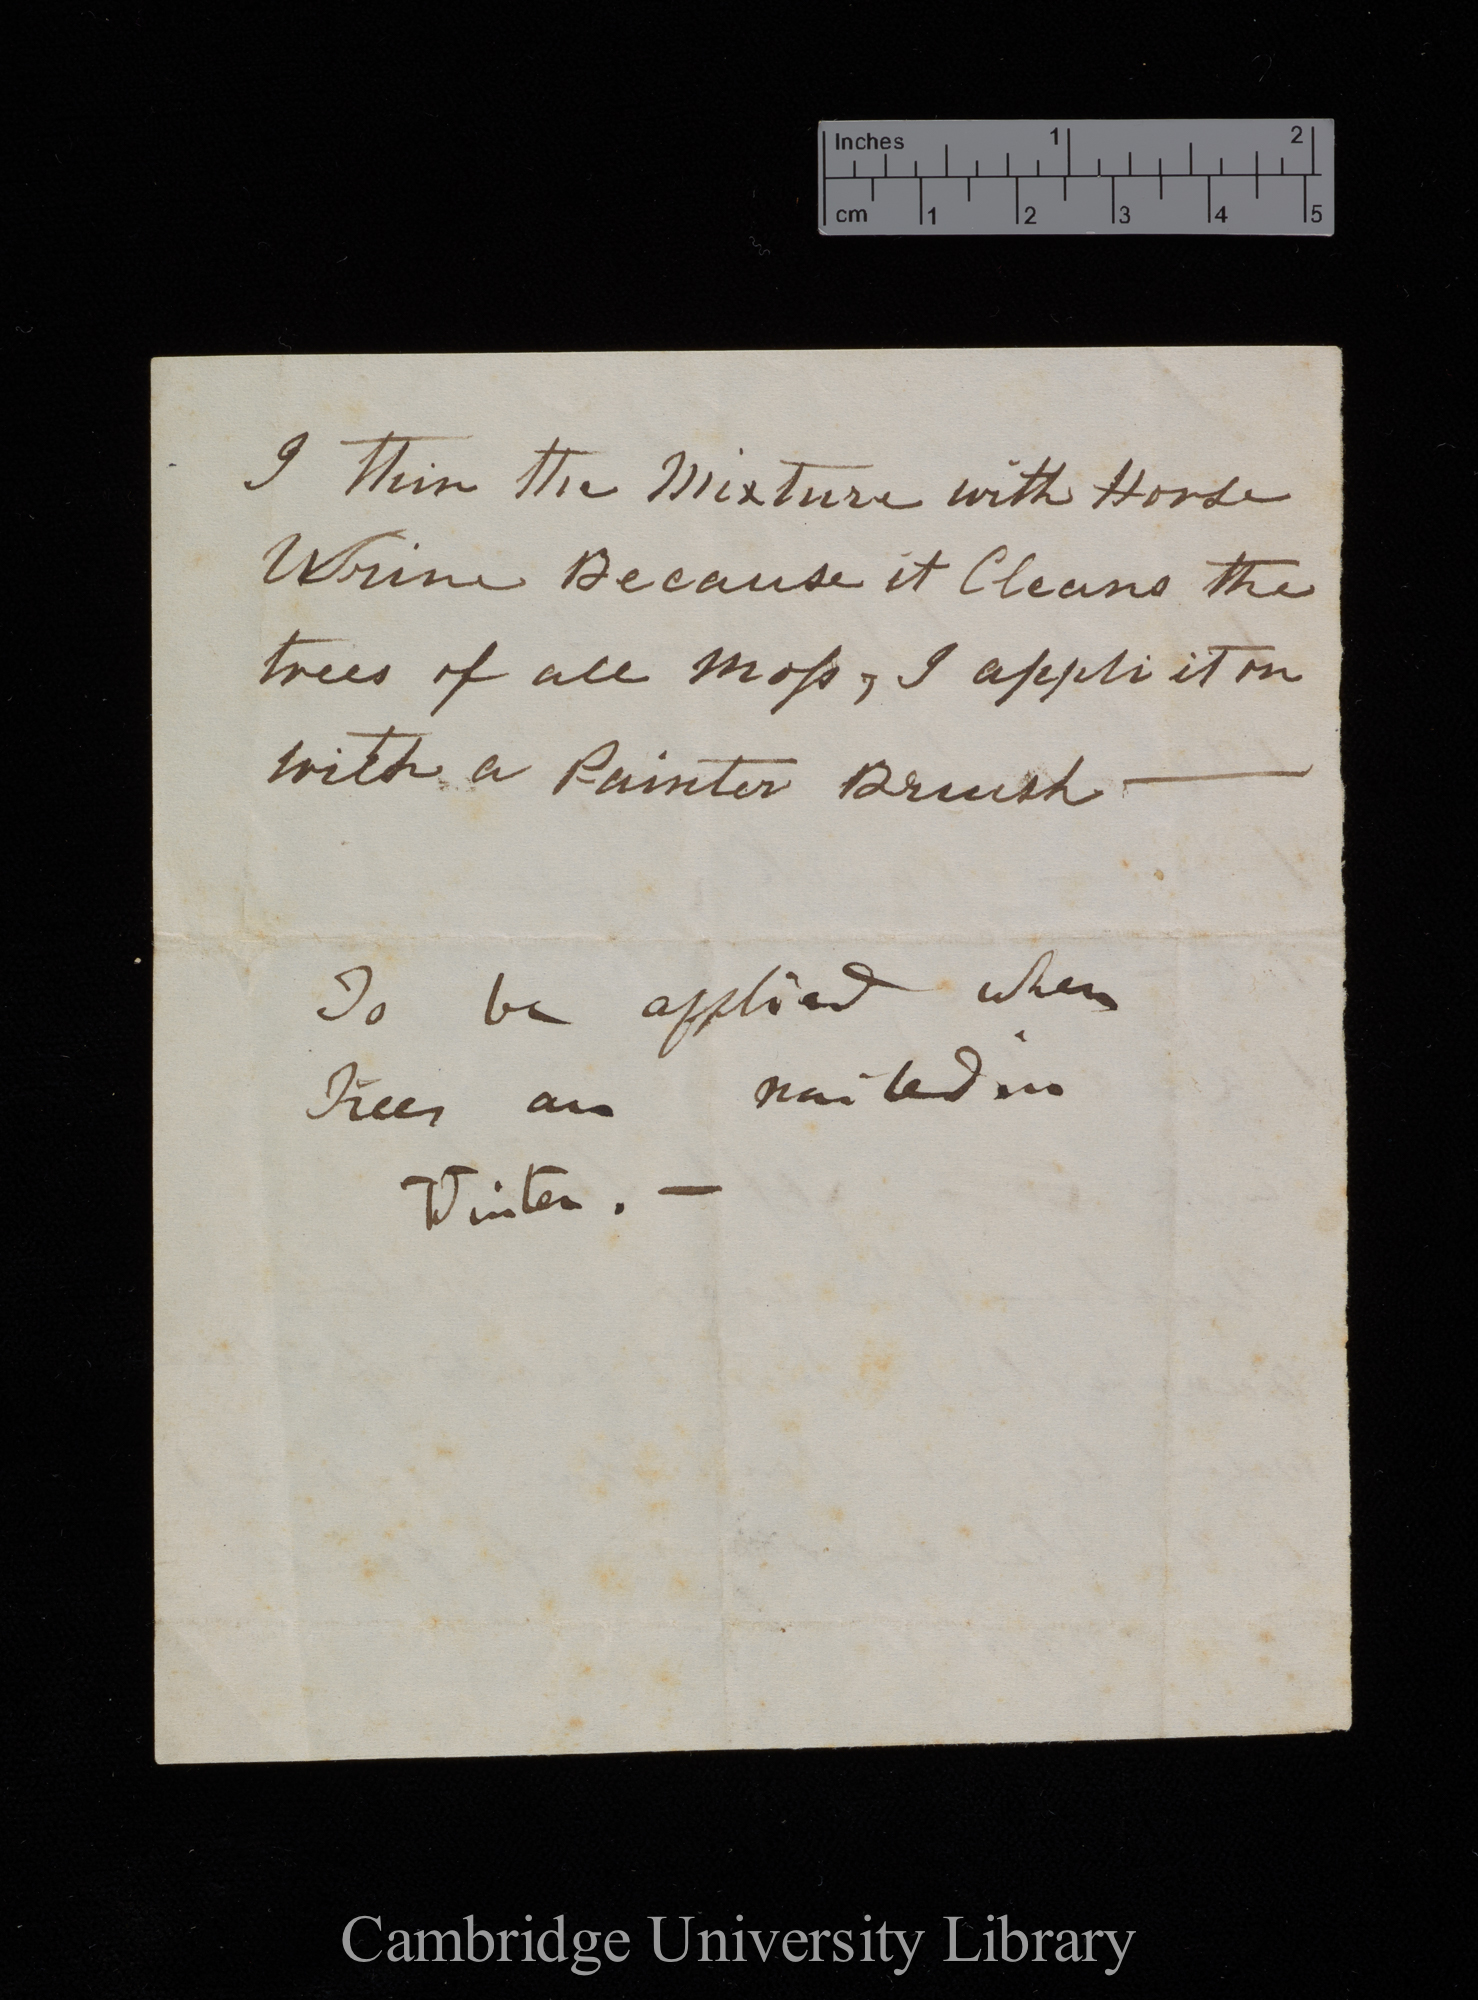 Inches 1 2
cm 1 2 3 4 5
I thin the Mixture with Horse
Wrine Because it Cleans the
trees of all Moſs, I appli it on
with a Painter Brush —
To be applied when
Trees are nailed in
Winter. —
Cambridge University Library